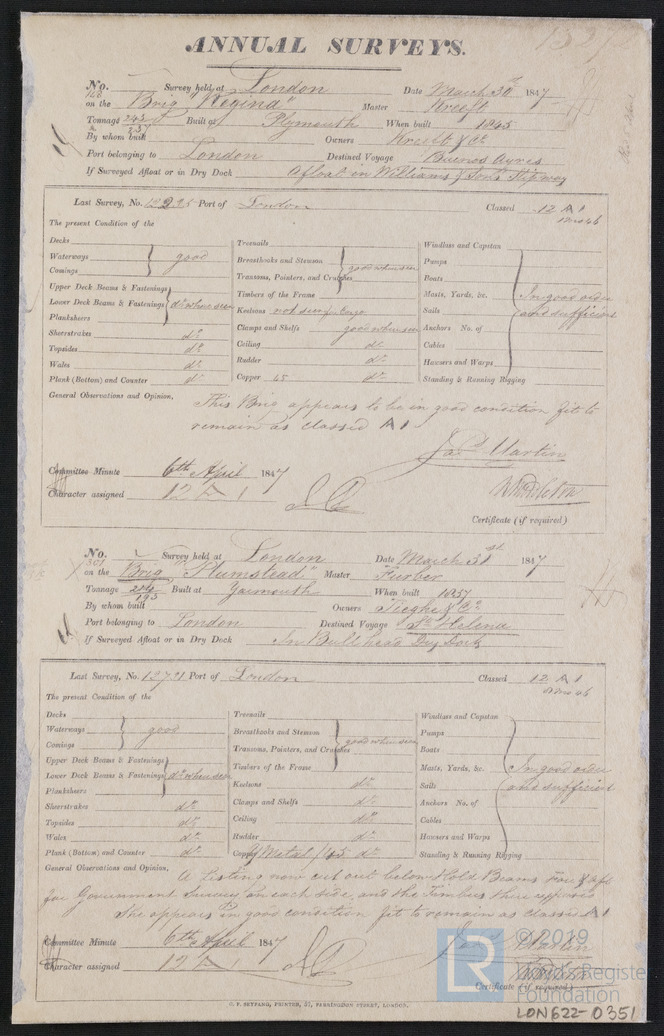 ANNUAL SURVEYS.
No. Survey held at London Date March 30th 1847
on the Brig "Regina" Master Kreeft
Tonnage 243 Built at Plymouth When built 1845
237
By whom built Owners Kreeft & Co
Port belonging to London Destined Voyage Buenos Ayres
If Surveyed Afloat or in Dry Dock Afloat in Williams & Sons Slipway
Last Survey, No. 12225 Port of London Classed 12 A 1
The present Condition of the
Decks
Waterways good
Comings
Upper Deck Beams & Fastenings
Lower Deck Beams & Fastenings do where seen
Planksheers
Sheerstrakes do
Topsides do
Wales do
Plank (Bottom) and Counter do
Treenails
Breasthooks and Stemson good when seen
Transoms, Pointers, and Crutches
Timbers of the Frame
Keelsons not seen for Cargo
Clamps and Shelfs good when seen
Ceiling do
Rudder do
Copper 45 do
Windlass and Capstan
Pumps
Boats
Masts, Yards, &c. In good order
Sails and sufficient
Anchors No. of
Cables
Hawsers and Warps
Standing & Running Rigging
General Observations and Opinion, This Brig appears to be in good condition fit to
remain as classed A 1
Jas. Martin
Committee Minute 6th April 1847
Character assigned 12 A 1
Certificate (if required)
No. Survey held at London Date March 31st 1847
301
on the Brig "Plumstead" Master Furber
Tonnage Built at Yarmouth When built
193
By whom built Owners Tieghe & Co
Port belonging to London Destined Voyage St Helena
If Surveyed Afloat or in Dry Dock In Bulchers Dry Dock
Last Survey, No. 12721 Port of London Classed 12 A 1
The present Condition of the
Decks
Waterways good
Comings
Upper Deck Beams & Fastenings
Lower Deck Beams & Fastenings do when seen
Planksheers
Sheerstrakes do
Topsides do
Wales do
Plank (Bottom) and Counter do
Treenails
Breasthooks and Stemson good when seen
Transoms, Pointers, and Crutches
Timbers of the Frame
Keelsons do
Clamps and Shelfs do
Ceiling do
Rudder do
Copper Y Metal /45 do
Windlass and Capstan
Pumps
Boats
Masts, Yards, &c. In good order
Sails and sufficient
Anchors No. of
Cables
Hawsers and Warps
Standing & Running Rigging
General Observations and Opinion, A Listing now cut out below Hold Beams Fore & Aft
for Government Survey on each side, and the Timbers there exposed
She appears in good condition fit to remain as classed A 1
Committee Minute 6th April 1847
Character assigned 12 A 1
Martin
Certificate (if required)
C. F. SEYFANG, PRINTER, 57, FARRINGDON STREET, LONDON.
LR © 2019
Lloyd's Register
Foundation
LON622-0351